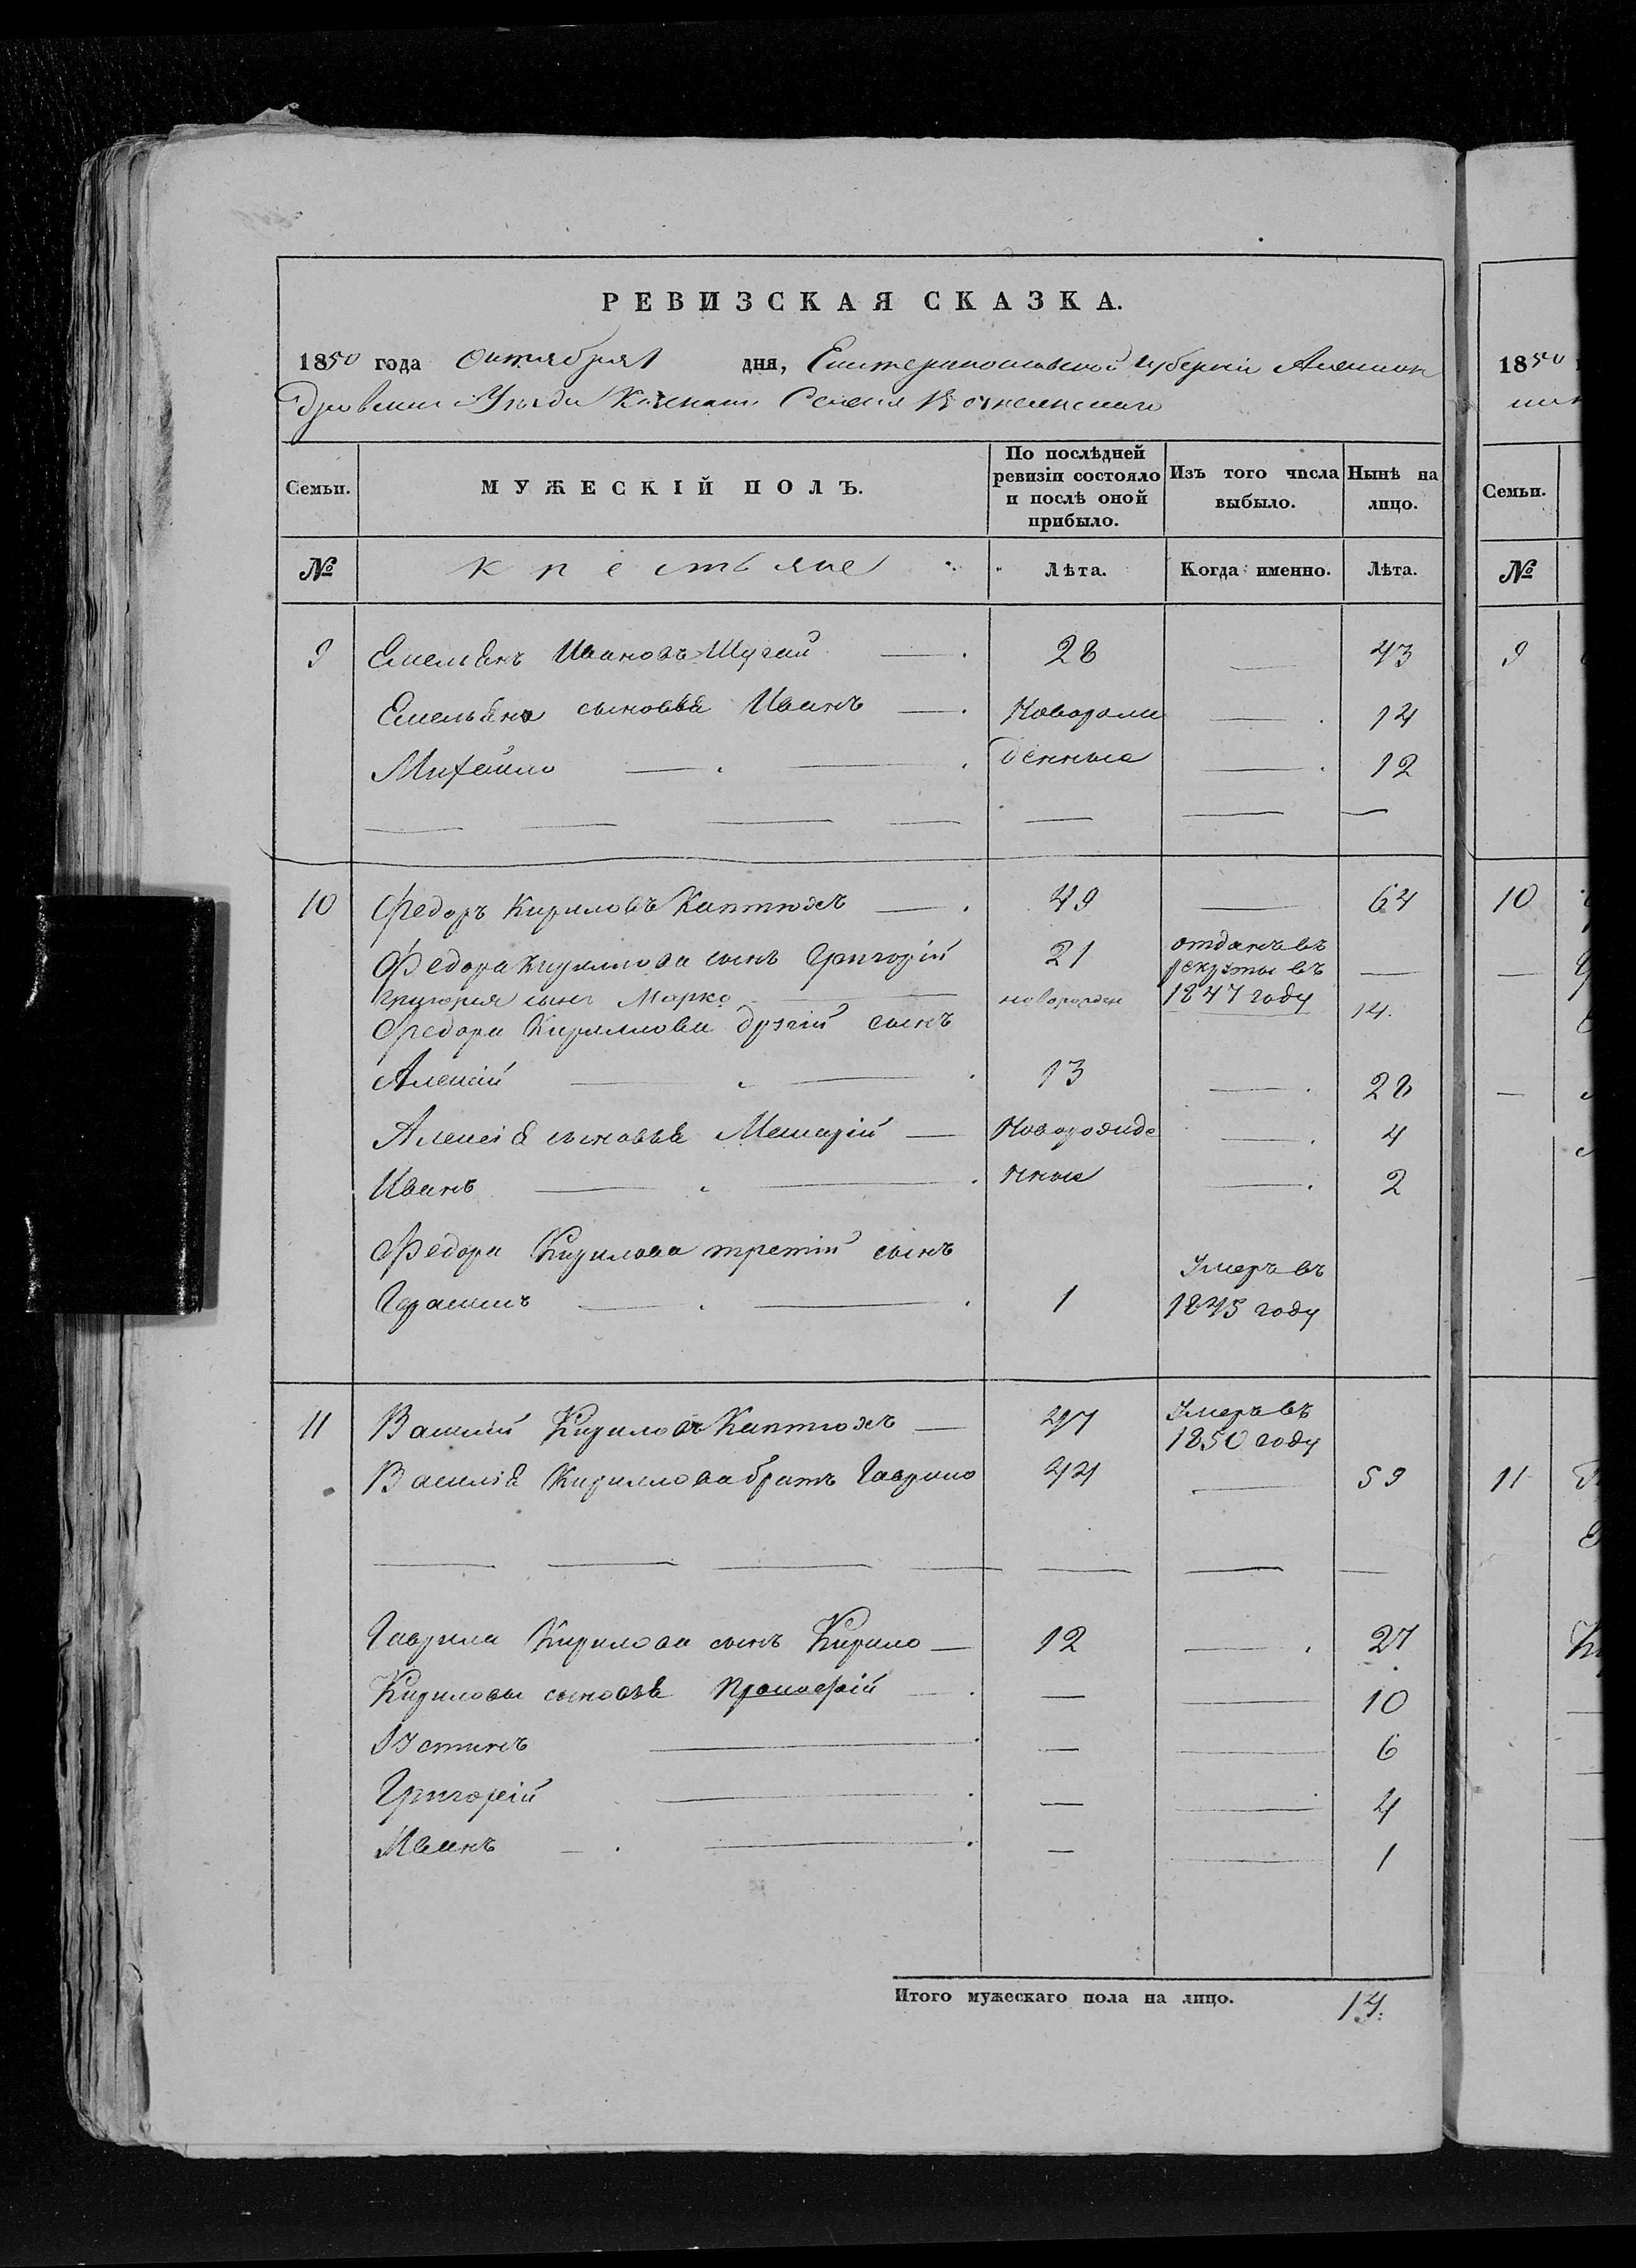 РЕВИЗСКАЯ СКАЗКА.
1850 года Октября 1 дня, Екатеринославской Губерніи Алексан
дровскаго Уѣзда Села
Семьи. МУЖЕСКІЙ ПОЛЪ. По послѣдней ревизіи состояло и послѣ оной прибыло. Изъ того числа выбыло. Нынѣ на лицо.
№ крестьяне Лѣта. Когда именно. Лѣта.
9 Емельянъ Ивановъ Шугай 28 — 43
Емельяна сыновья Иванъ Новорож — 14
Михайло денные — 12
10 Федоръ Кириловъ Каптюхъ 49 — 64
Федора Кирилова сынъ Григорій 21 отданъ въ рекруты въ 1847 году —
Григорія сынъ Марко новорожден 14.
Федора Кирилова другій сынъ
Алексій 13 — 28
Алексія сыновья Макарій Новорожде — 4
Иванъ нные — 2
Федора Кирилова третій сынъ
Герасимъ 1 Умеръ въ 1845 году
11 Василій Кириловъ Каптюхъ 47 Умеръ въ 1850 году
Василія Кирилова братъ Гаврило 44 — 59
Гаврила Кирилова сынъ Кирило 12 — 27
Кириловы сыновья Прокофій — — 10
Устинъ — — 6
Григорій — — 4
Иванъ — — 1
Итого мужескаго пола на лицо. 14.
1850
Семьи.
№
9
10
11